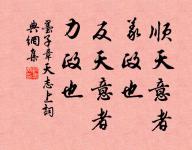 順天意者
義政也
反天意者
力政也
墨子章天志上詞
典網集